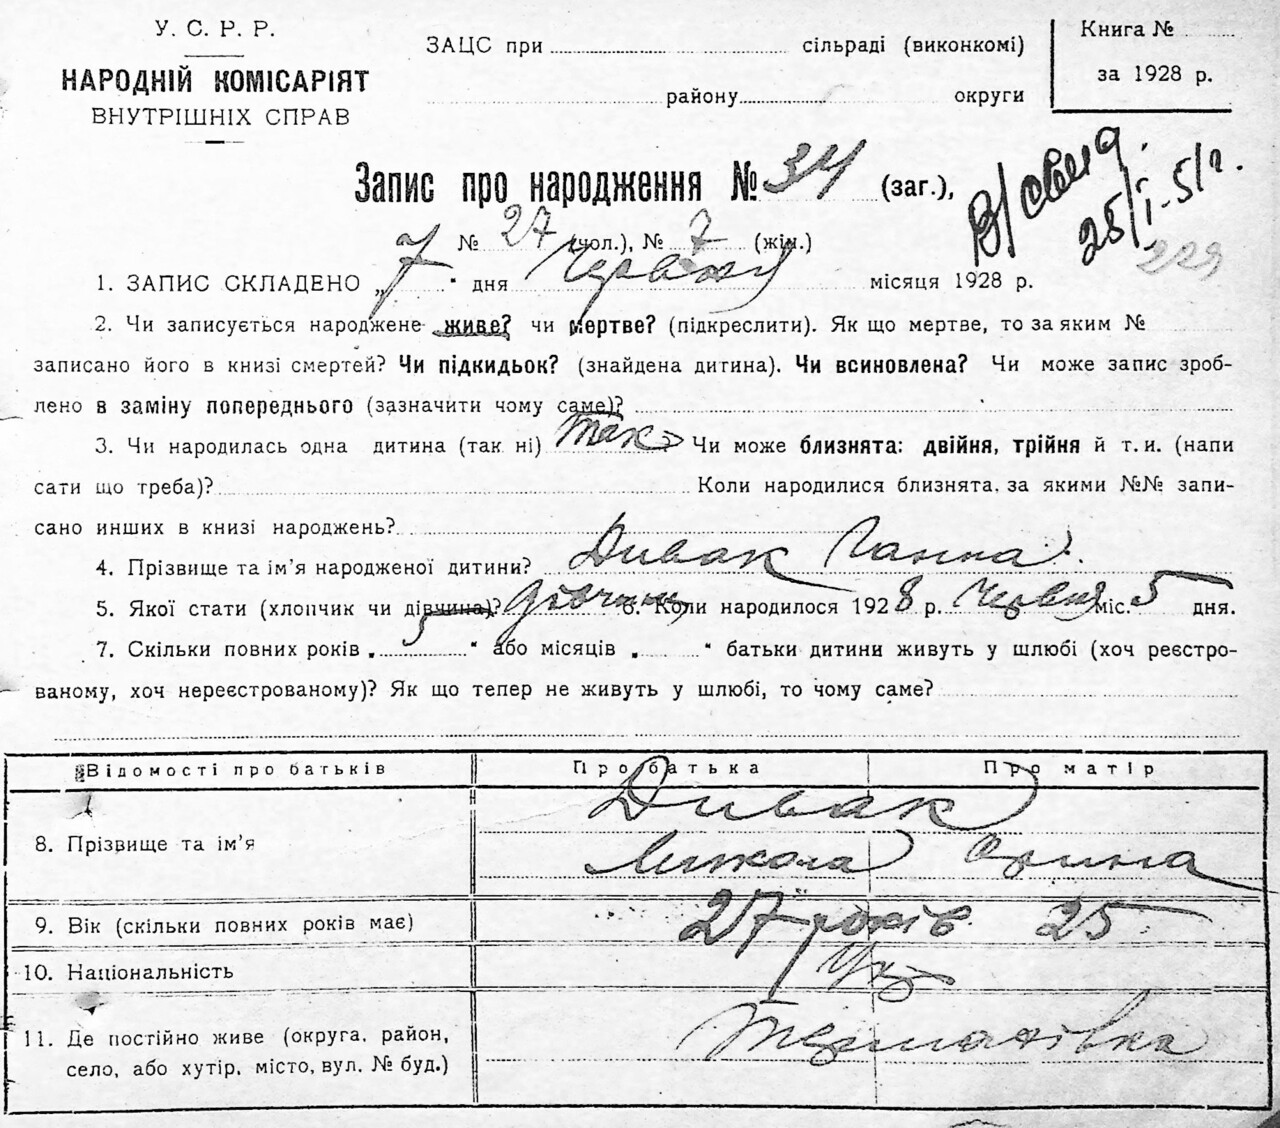 У. С. Р. Р.
НАРОДНІЙ КОМІСАРІЯТ
ВНУТРІШНІХ СПРАВ
ЗАЦС при сільраді (виконкомі)
району округи
Книга №
за 1928 р.
Запис про народження № 34 (заг.),
№ 27 (чол.), № 7 (жін.)
В/свид.
25/І-51 г.
229
1. ЗАПИС СКЛАДЕНО „7" дня Червня місяця 1928 р.
2. Чи записується народжене живе? чи мертве? (підкреслити). Як що мертве, то за яким №
записано його в книзі смертей? Чи підкидьок? (знайдена дитина). Чи всиновлена? Чи може запис зроб-
лено в заміну попереднього (зазначити чому саме)?
3. Чи народилась одна дитина (так ні) Так Чи може близнята: двійня, трійня й т. и. (напи
сати що треба)? Коли народилися близнята, за якими №№ запи-
сано инших в книзі народжень?
4. Прізвище та ім'я народженої дитини? Дивак Ганна.
5. Якої стати (хлопчик чи дівчина)? дівчина 6. Коли народилося 1928 р. Червня міс. 5 дня.
7. Скільки повних років „5" або місяців „ " батьки дитини живуть у шлюбі (хоч реєстро-
ваному, хоч нереєстрованому)? Як що тепер не живуть у шлюбі, то чому саме?
Відомості про батьків Про батька Про матір
8. Прізвище та ім'я Дивак
Микола Орина
9. Вік (скільки повних років має) 27 років 25
10. Національність Укр
11. Де постійно живе (округа, район,
село, або хутір, місто, вул. № буд.) Термахівка